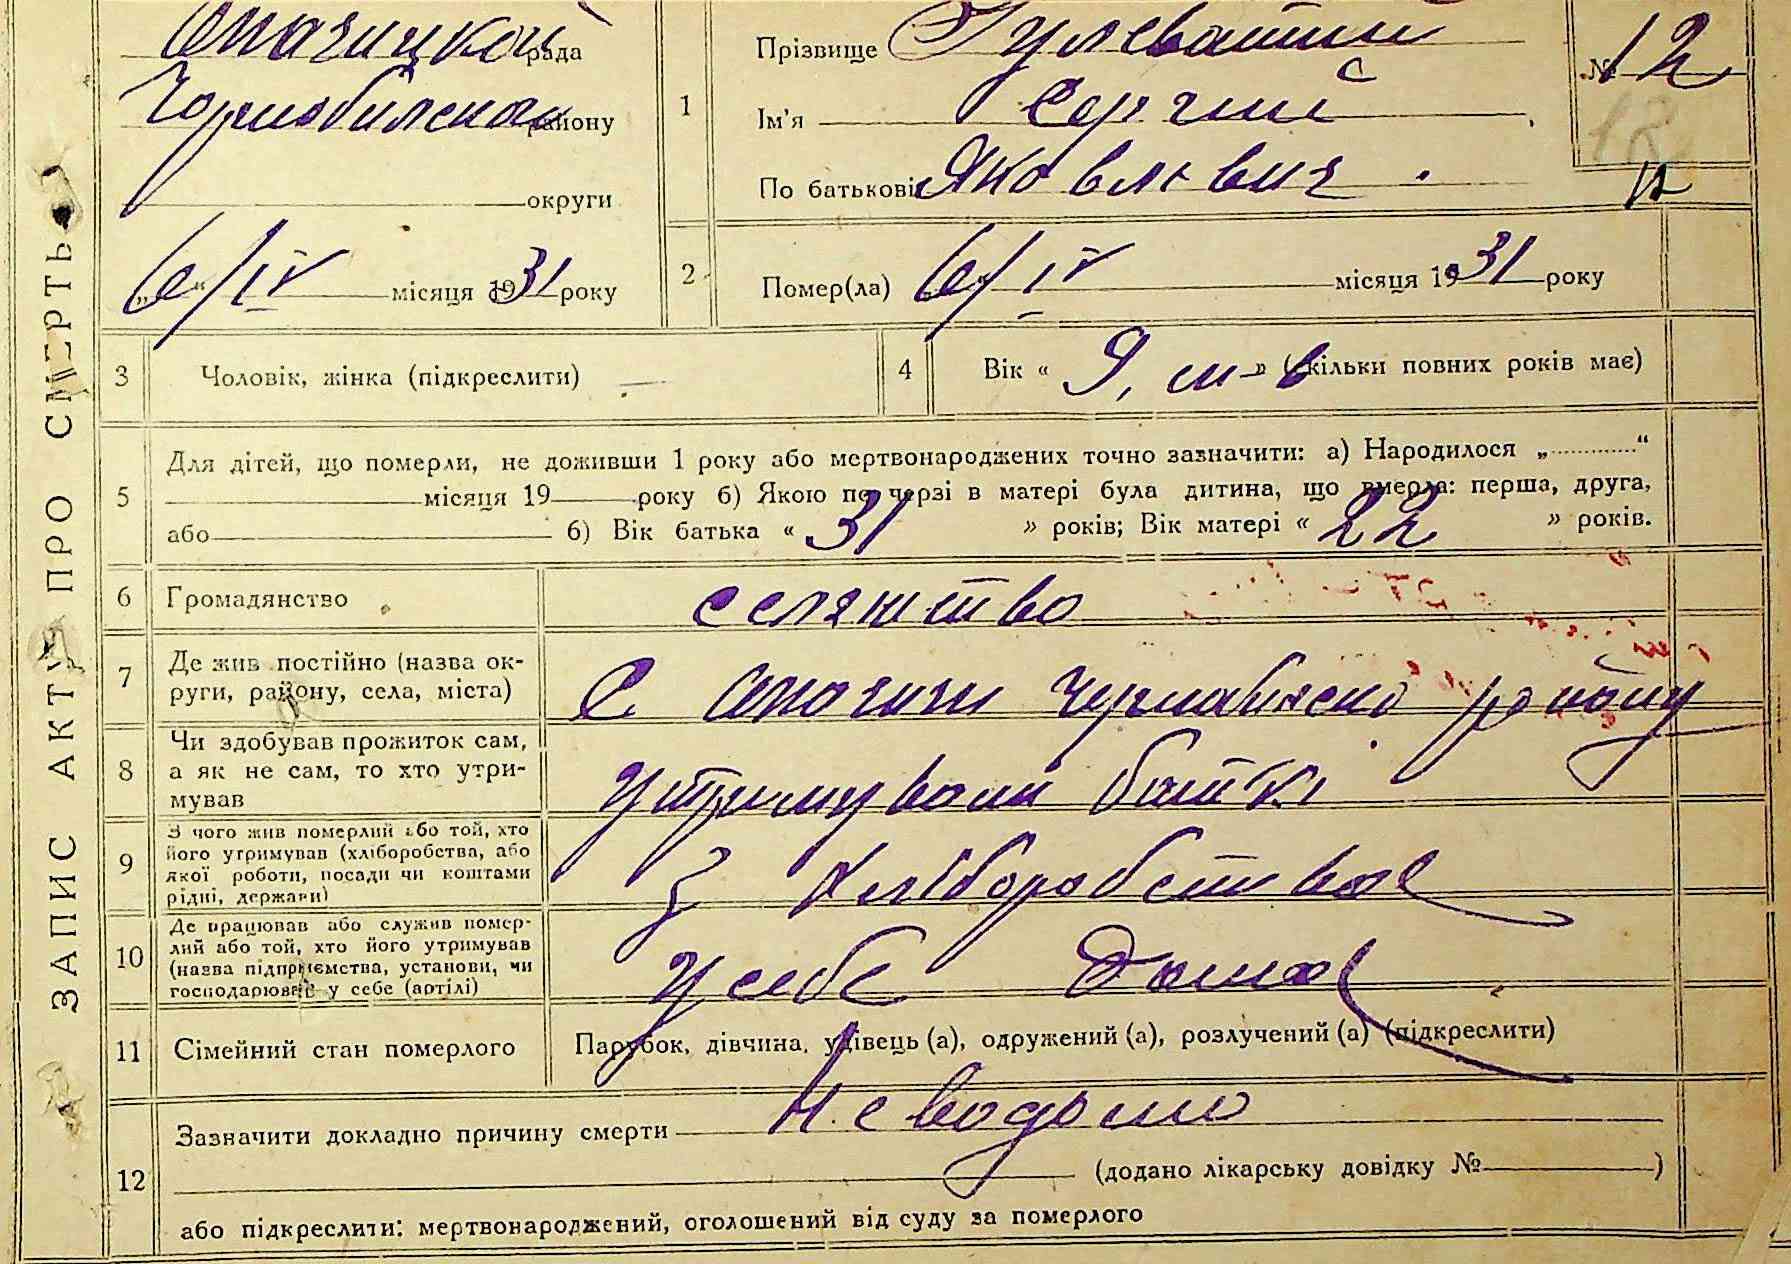 ЗАПИС АКТУ ПРО СМЕРТЬ
Опачицкой рада
Чорнобилского району
округи
„6“/IV місяця 1931 року
1 Прізвище Гулеватий
Ім'я Сергий
По батькові Яковлевич.
№ 12
12
2 Помер(ла) 6/IV місяця 1931 року
3 Чоловік, жінка (підкреслити)
4 Вік « 9, м-в » (скільки повних років має)
5 Для дітей, що померли, не доживши 1 року або мертвонароджених точно зазначити: а) Народилося „ “
місяця 19 року б) Якою по черзі в матері була дитина, що вмерла: перша, друга,
або б) Вік батька « 31 » років; Вік матері « 22 » років.
6 Громадянство селянство
7 Де жив постійно (назва ок-
руги, району, села, міста) С Опачичи Чорнобилско району
8 Чи здобував прожиток сам,
а як не сам, то хто утри-
мував утримували батки
9 З чого жив померлий або той, хто
його утримував (хліборобства, або
якої роботи, посади чи коштами
рідні, держави) з хліборобства
10 Де працював або служив помер-
лий або той, хто його утримував
(назва підприємства, установи, чи
господарював у себе (артілі) у себе дома
11 Сімейний стан померлого Парубок, дівчина, удівець (а), одружений (а), розлучений (а) (підкреслити)
12 Зазначити докладно причину смерти неводомо
(додано лікарську довідку № )
або підкреслити: мертвонароджений, оголошений від суду за померлого